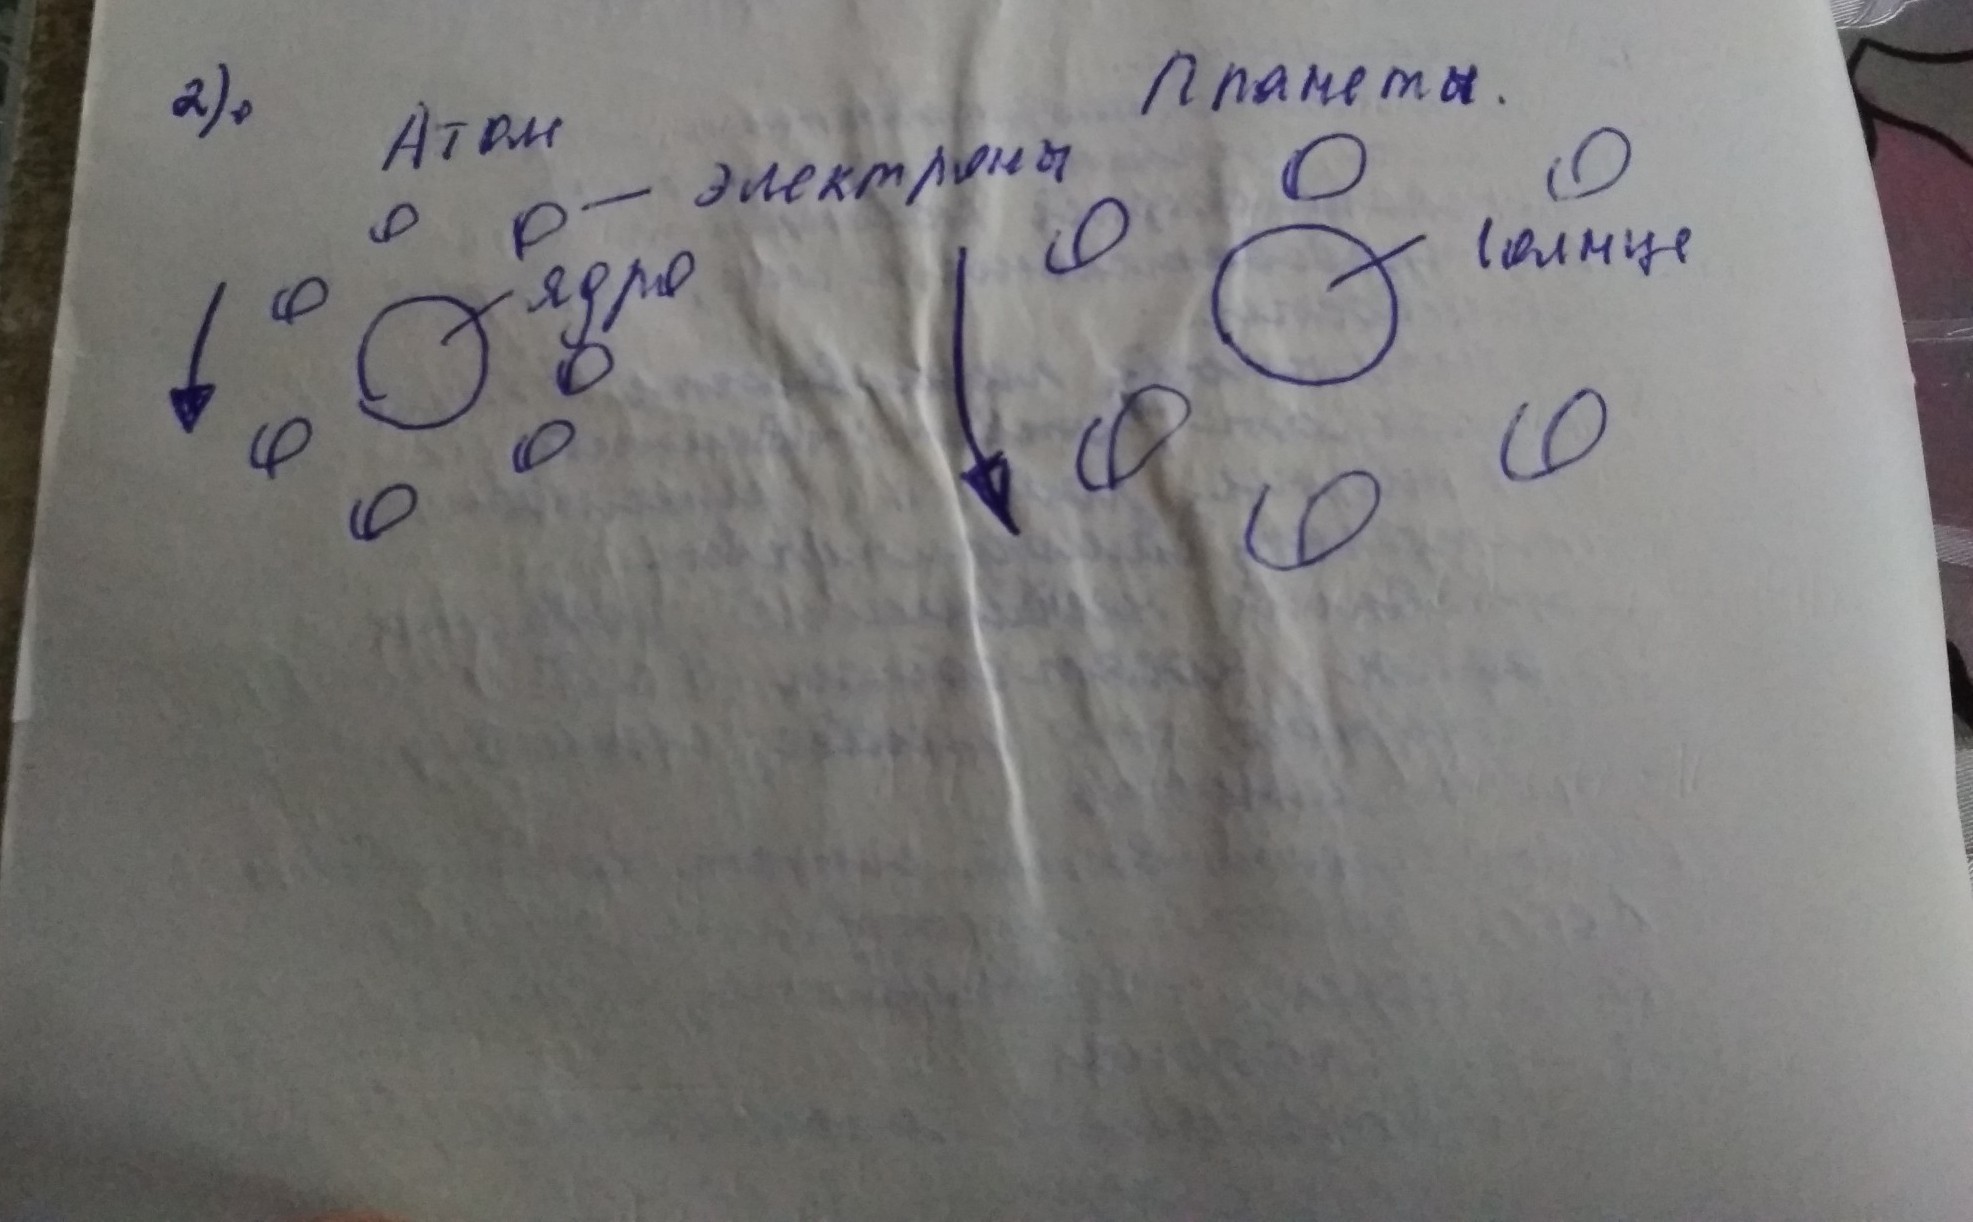 2).
Атом
Планеты.
электроны
ядро
Солнце